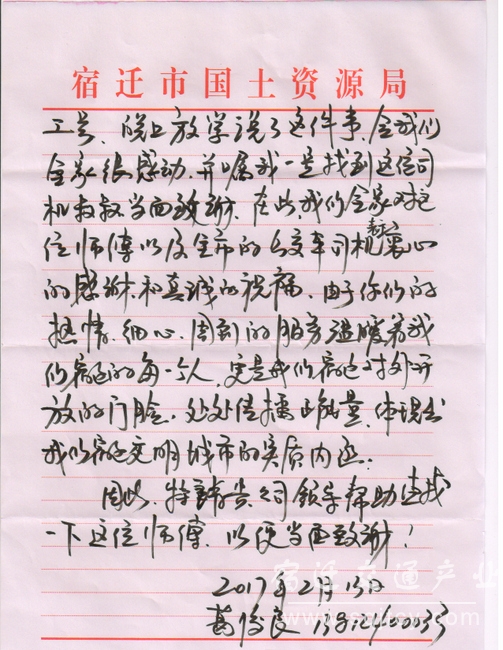 宿迁市国土资源局
工号、晚上放学说了这件事,令我们
全家很感动,并嘱我一定找到这位司
机叔叔当面致谢。在此,我们全家对这
位师傅以及全市的公交车司机表示衷心
的感谢和真诚的祝福,由于你们的
热情、细心、周到的服务温暖着我
们宿迁的每一个人,更是我们宿迁对外开
放的门脸。处处传播正能量,体现出
我们宿迁文明城市的实质内涵。
因此,特请贵公司领导帮助查找
一下这位师傅,以便当面致谢!
2017年2月13日
葛俊良
宿迁交通产业